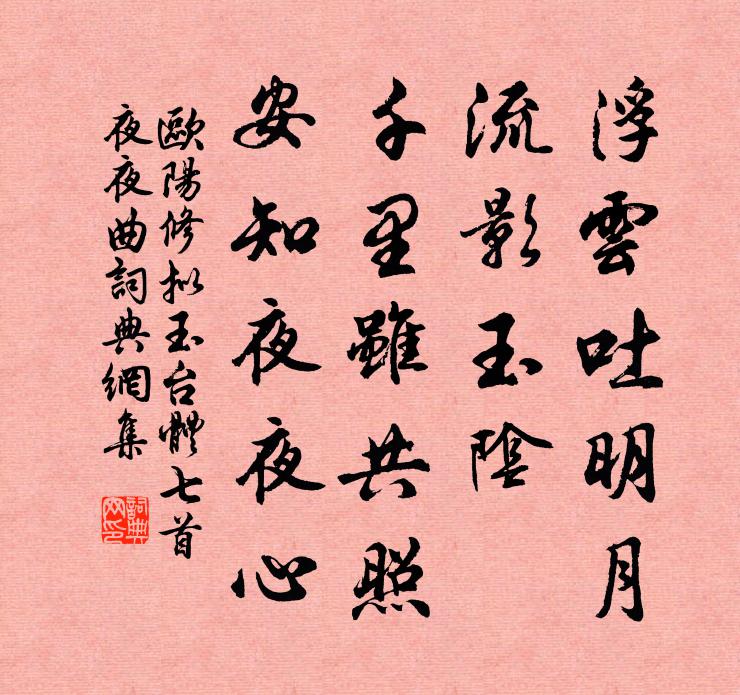 浮雲吐明月
流影玉陰
千里雖共照
安知夜夜心
歐陽修拟玉台體七首
夜夜曲詞典網集
詞典
网印